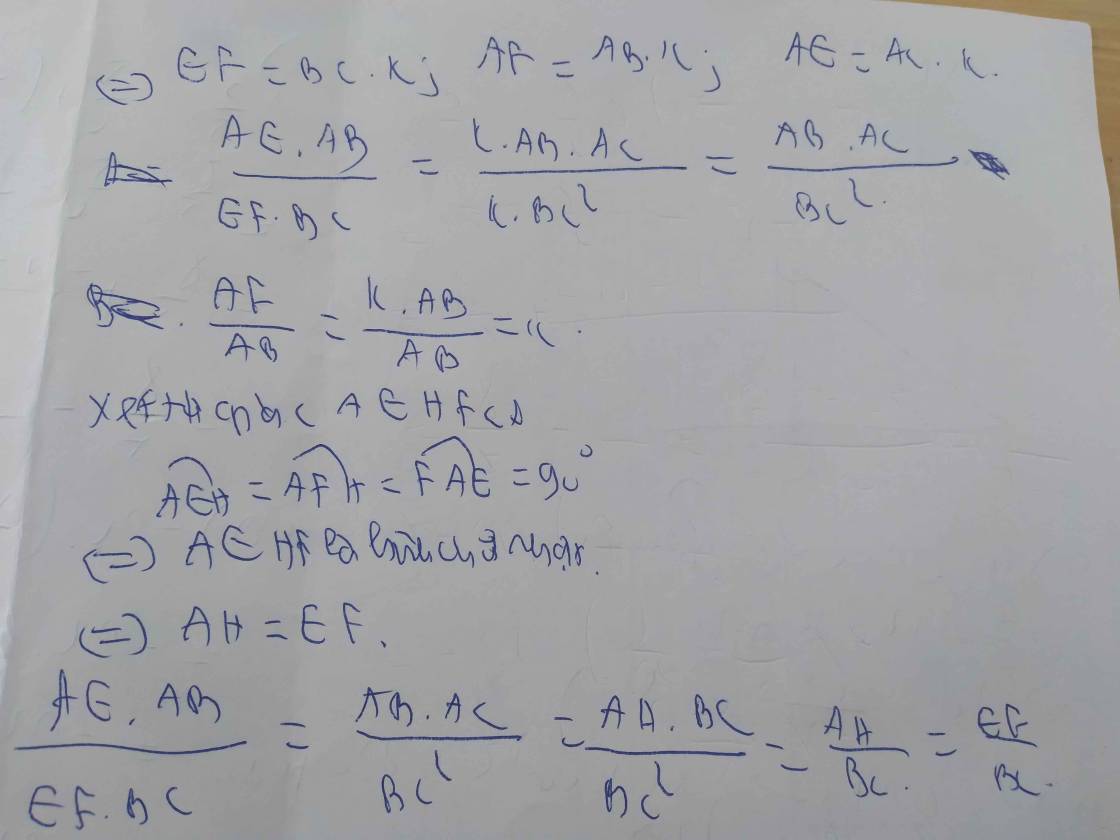 (=) EF = BC . K ; AF = AB . K ; AE = AC . K .
AE . AB / EF . BC = K . AB . AC / K . BC² = AB . AC / BC² .
AF / AB = K . AB / AB = K .
xét tứ giác AEHF có
AEH = AFH = FAE = 90°
(=) AEHF là hình chữ nhật.
(=) AH = EF .
AE . AB / EF . BC = AB . AC / BC² = AH . BC / BC² = AH / BC . = EF / BC .